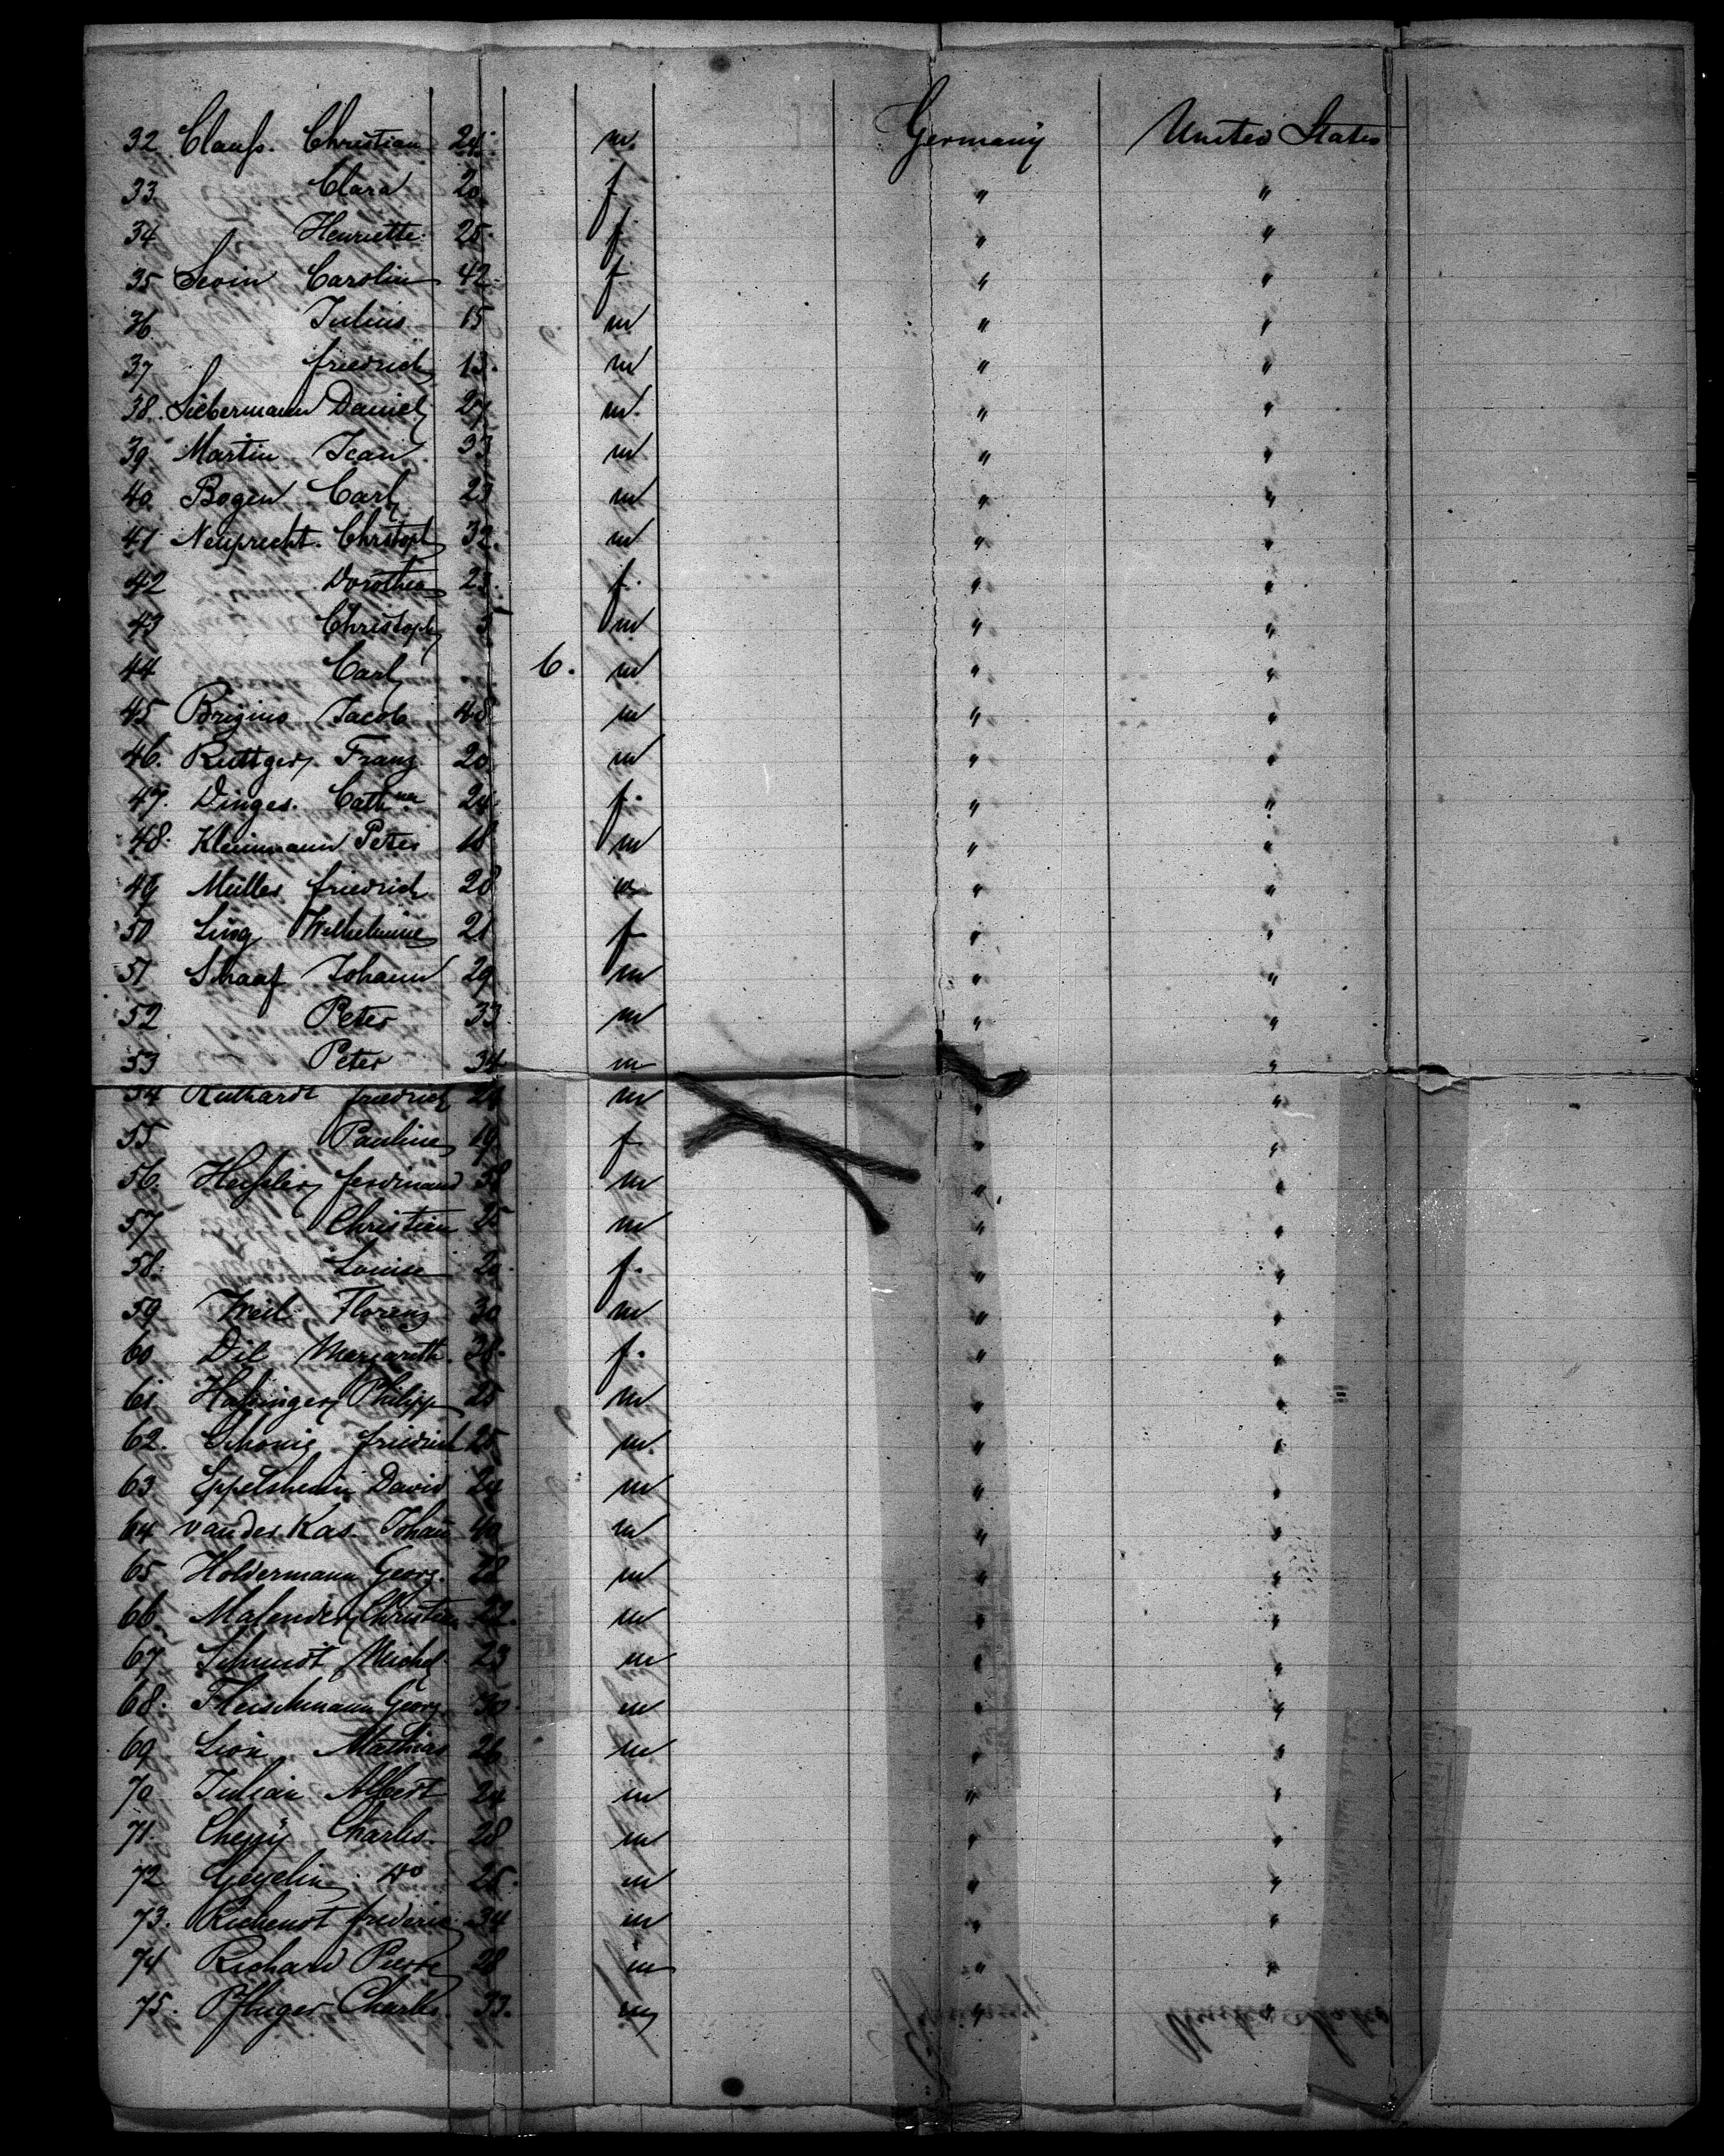 32 Clauss. Christian 24. m. Germany United States
33 Clara 20 f " "
34 Henriette 25. f " "
35 Levin Carolin 42. f " "
36 Julius 15 m " "
37 friedrich 13. m " "
38. Liebermann Daniel 27 m. " "
39 Martin Jean 33 m " "
40 Bogen Carl 23 m " "
41 Neuprecht. Christoph 32. m " "
42 Dorothea f. " "
43 Christoph 3 m " "
44 Carl 6. m " "
45 Jacob 48 m " "
46. Ruttger, Franz 20 m " "
47. Dinges. Cath.na 24. f. " "
48. Kleinmann Peter 18 m " "
49 Muller friedrich 28 m " "
50 Wilhelmine 21 f " "
51 Schaaf Johann 29 m " "
52 Peter 33 m " "
53 Peter 34 m "
54 Ruthardt friedrich 24 m " "
55 Pauline 19 f " "
56. ferdinand m " "
57 Christian m " "
58. Louise 20. f. " "
59 Weil Florenz 30 m " "
60 Dil Margareth. f. " "
61. Philipp 25 m. " "
62. Schonig friedrich 25 m. " "
63 Eppelsheim David 24 m " "
64 van der Kas Johann 40 m " "
65 Holdermann Georg. 22 m " "
66 Christian 22. m " "
67 Schmidt Michel 23 m " "
68. Fleischmann Georg 30. m " "
69 Lion Mathias 26 m " "
70 Julian Albert 24 m " "
71. Charles. 28 m " "
72 Geyelin do 25. m " "
73. frederic 34 m " "
74 Richard Pierre 28 m " "
75. Pfluger Charles. 33. m " "